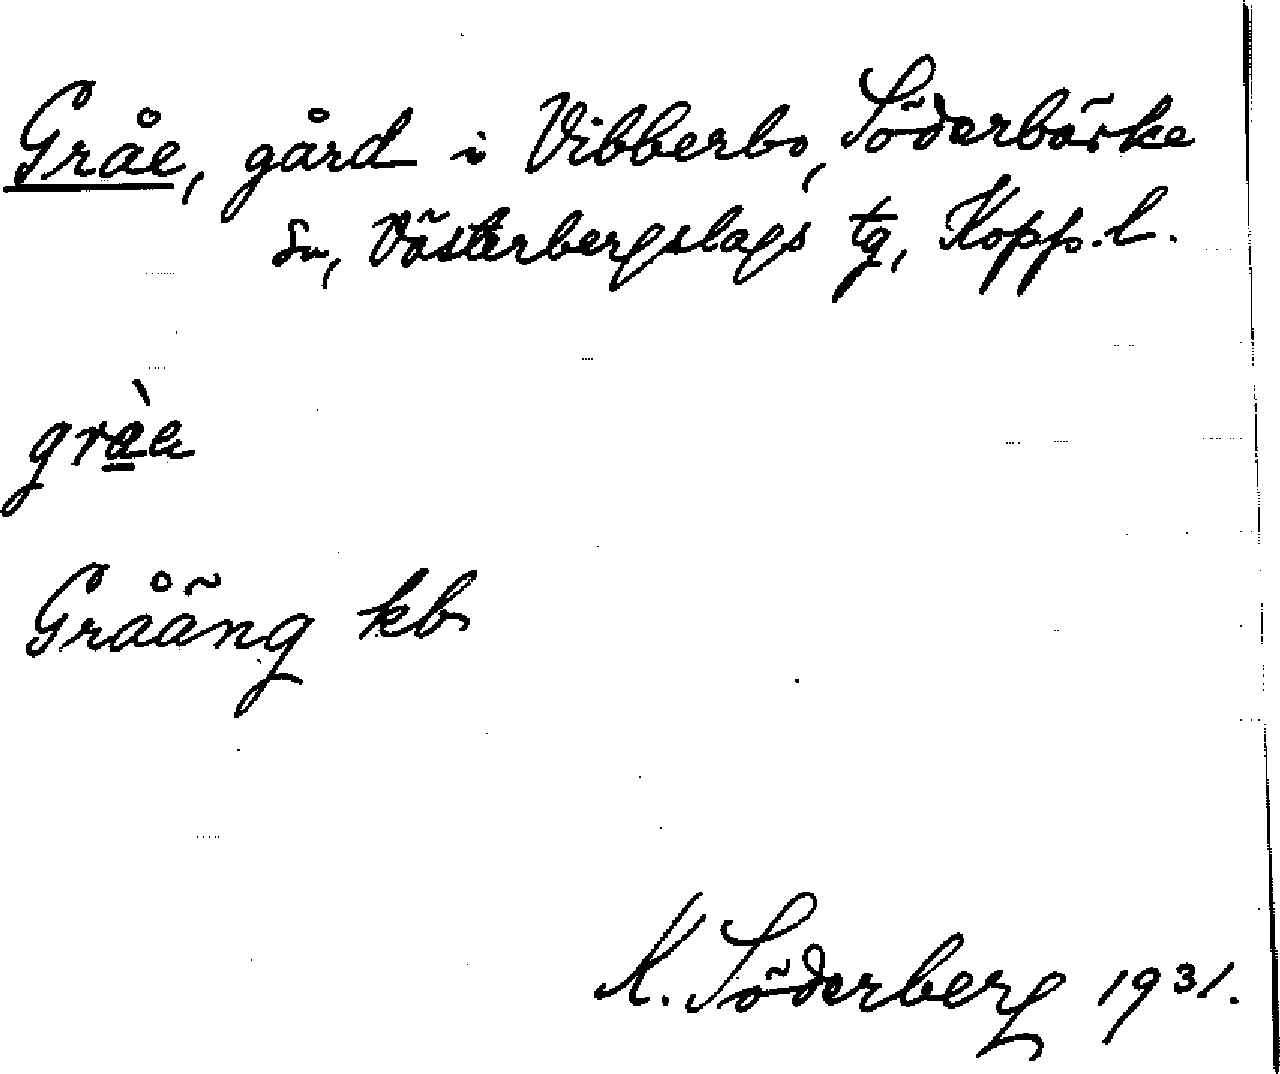 Gråe, gård i Vibberbo, Söderbärke
sn, Västerbergslags tg, Kopp. l.
gràe
Gråäng kb
K. Söderberg 1931.